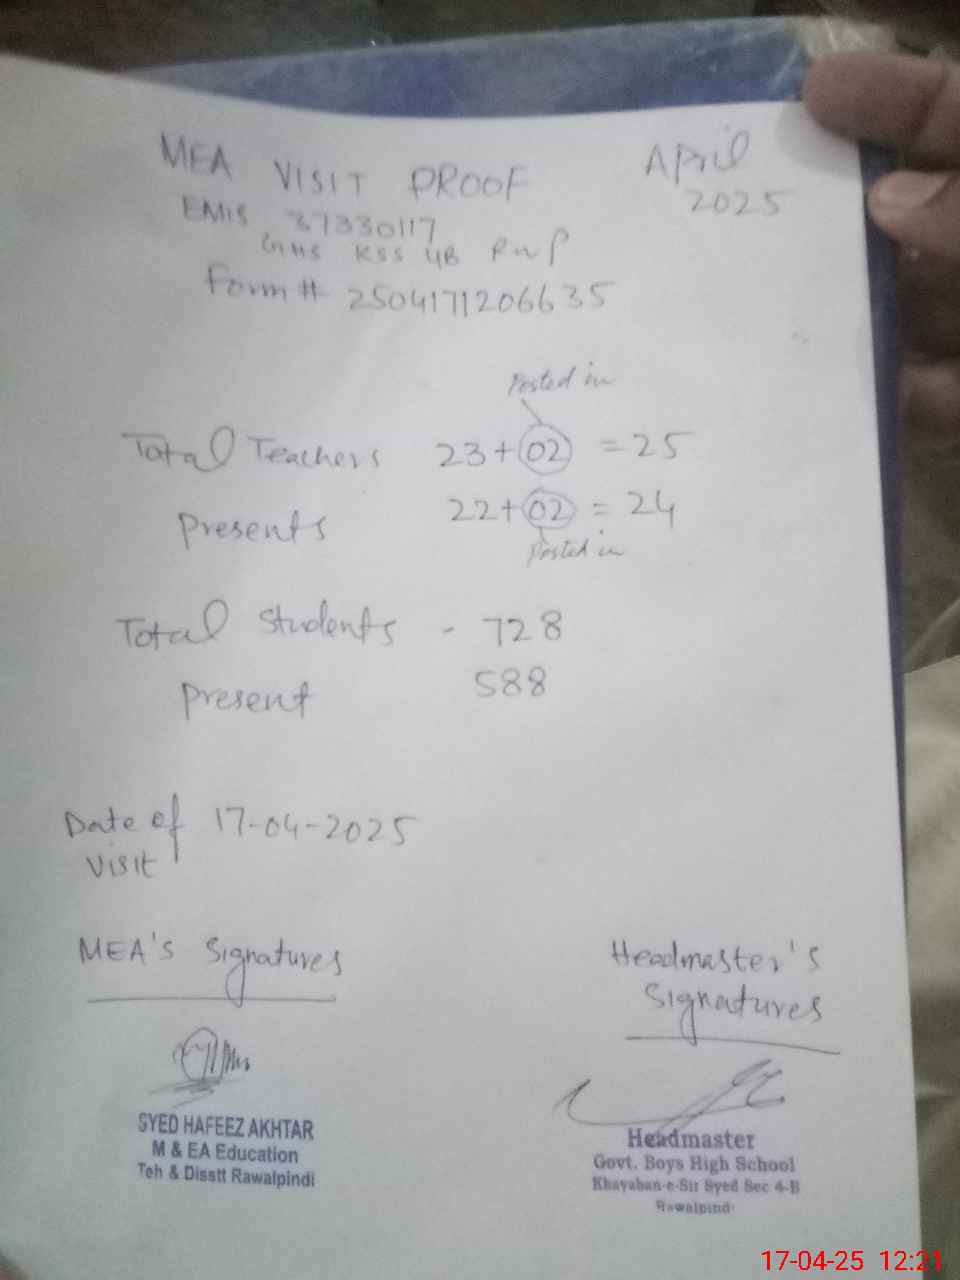 MEA VISIT PROOF
April
2025
EMIS 37330117
GHS KSS 4B Rwp
Form # 2504171206635
Posted in
Total Teachers 23+02 = 25
Presents 22+02 = 24
Posted in
Total Students - 728
Present 588
Date of 17-04-2025
visit
MEA's Signatures
Headmaster's
Signatures
SYED HAFEEZ AKHTAR
M & EA Education
Teh & Disstt Rawalpindi
Headmaster
Govt. Boys High School
Khayaban-e-Sir Syed Sec 4-B
Rawalpindi
17-04-25 12:21